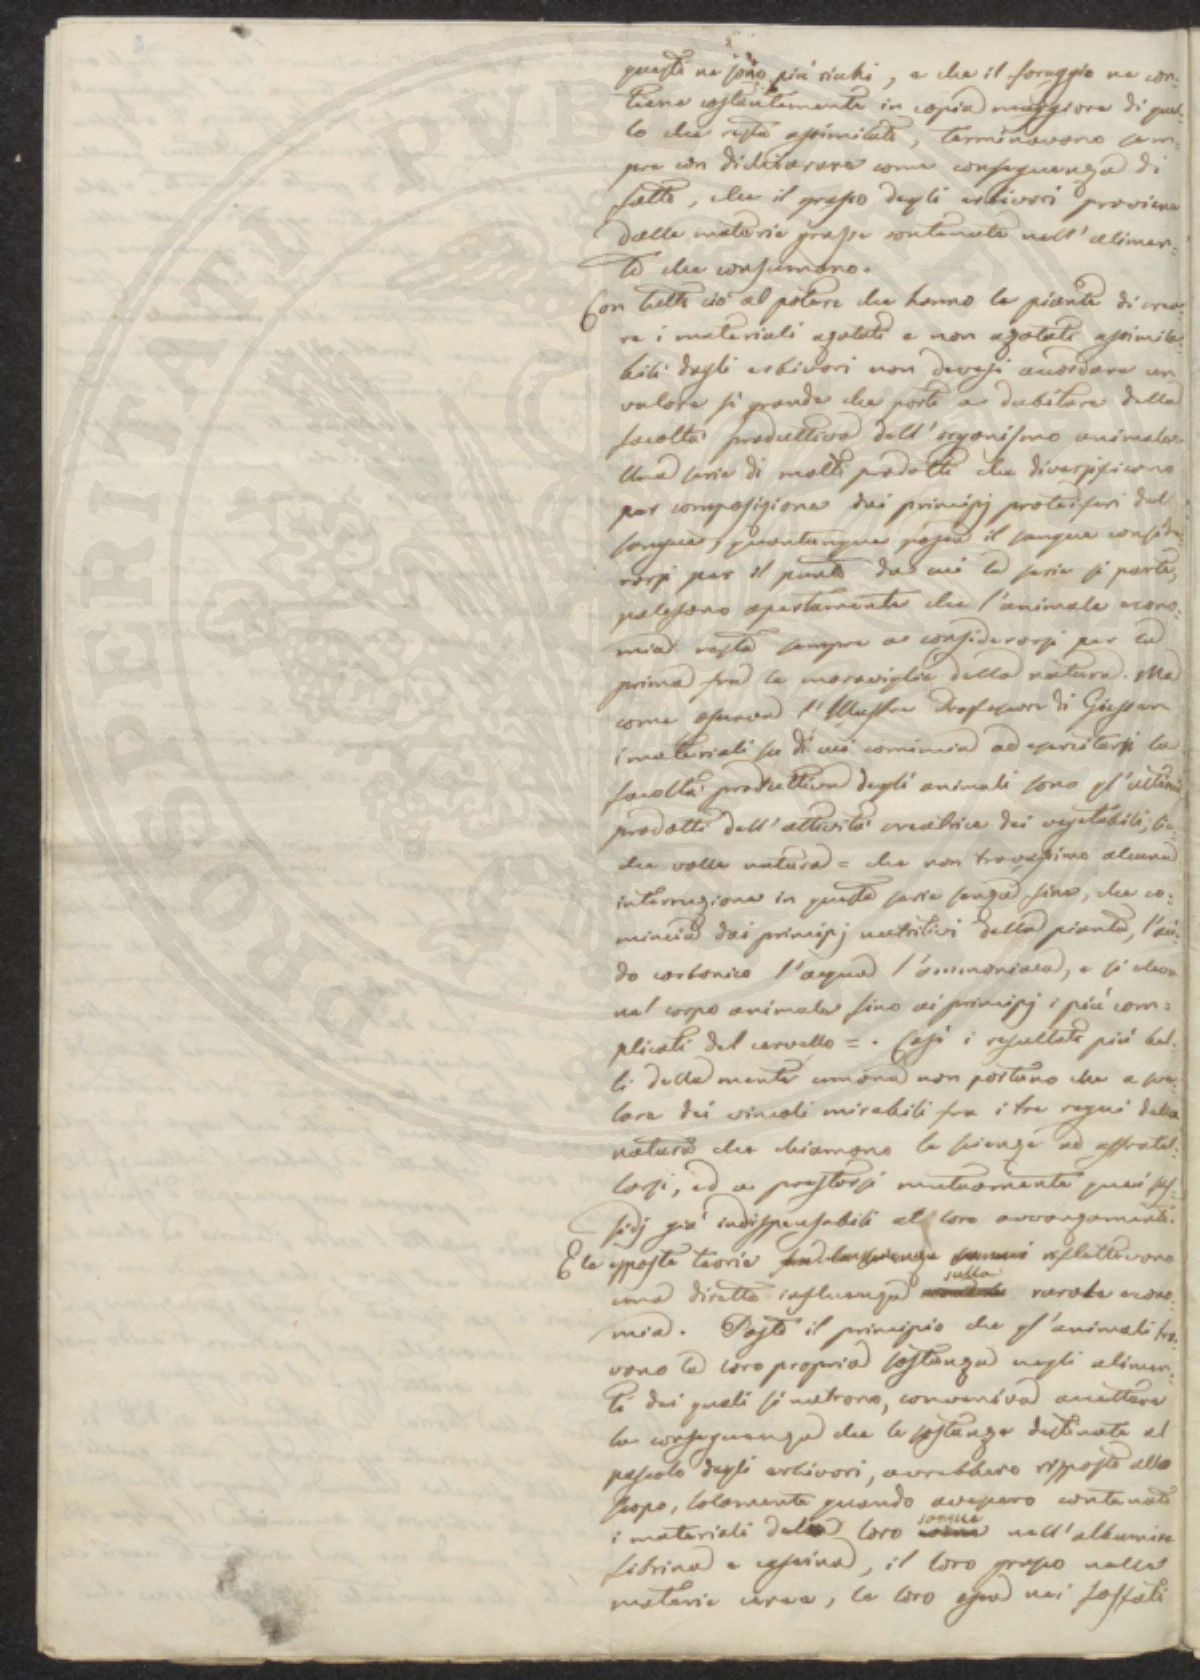 questi ne sono più ricchi, e che il foraggio ne con-
tiene costantemente in copia maggiore di quel-
lo che resta assimilato, terminavano sem-
pre con dichiarare come conseguenza di
fatto, che il grasso degli erbivori proviene
dalle materie grasse contenute nell'alimen-
to che consumano.
Con tutto ciò al potere che hanno le piante di crea-
re i materiali azotati e non azotati assimila-
bili dagli erbivori non devesi accordare un
valore sì grande che porti a dubitare della
facoltà produttiva dell'organismo animale.
Una serie di molti prodotti che diversificano
per composizione dai principj proteiferi del
sangue, quantunque possa il sangue conside-
rarsi per il punto da cui la serie si parte,
palesano apertamente che l'animale econo-
mia resta sempre a considerarsi per la
prima fra le maraviglie della natura. Ma
come osserva l'Illustre Professore di Giessen
i materiali su di cui comincia ad esercitarsi la
facoltà produttiva degli animali sono gl'ultimi
prodotti dell'attività creatrice dei vegetabili,
che volle natura = che non trovassimo alcuna
interruzione in questa serie senza fine, che co-
mincia dai principj nutritivi della pianta, l'aci-
do carbonico l'acqua l'ammoniaca, e si eleva
nel corpo animale fino ai principj i più com-
plicati del cervello =. Così i resultati più bel-
li della mente umana non portano che a sve-
lare dei vincoli mirabili fra i tre regni della
natura che chiamano le scienze ad affratel-
larsi, ed a prestarsi mutuamente quei sus-
sidj già indispensabili al loro avanzamento.
E le esposte teorie riflettevano
una diretta influenza sulla rurale econo-
mia. Posto il principio che gl'animali tro-
vano la loro propria sostanza negli alimen-
ti dei quali si nutrono, conveniva accettare
la conseguenza che le sostanze destinate al
pascolo degli erbivori, avrebbero risposto allo
scopo, solamente quando avessero contenuti
i materiali del loro sangue nell'albumina
fibrina e caseina, il loro grasso nelle
materie ceree, le loro ossa nei fosfati